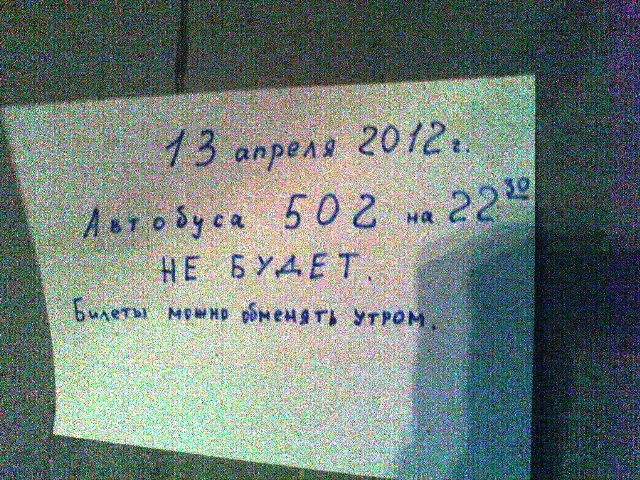 13 апреля 2012 г.
Автобуса 502 на 22 30
НЕ БУДЕТ.
Билеты можно обменять утром.